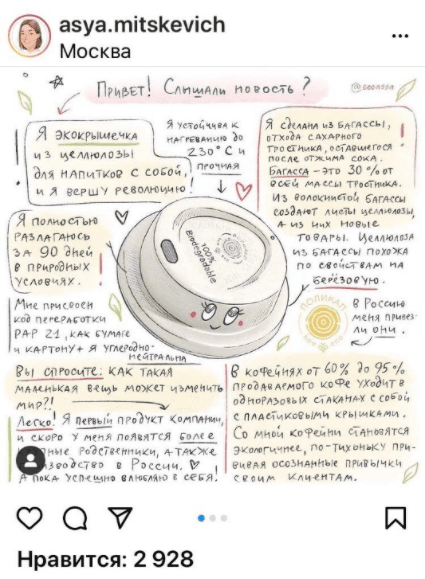 asya.mitskevich
Москва
Привет! Слышали новость?
Я экокрышечка
из целлюлозы
для напитков с собой,
и я вершу революцию!
Я устойчива к
нагреванию до
230°С и
прочная
Я сделана из багассы,
отхода сахарного
тростника, оставшегося
после отжима сока.
Багасса - это 30% от
всей массы тростника.
Из волокнистой багассы
создают листы целлюлозы,
а из них новые
товары. Целлюлоза
из багассы похожа
по свойствам на
берёзовую.
Я полностью
разлагаюсь
за 90 дней
в природных
условиях.
100%
Biodegradable
Мне присвоен
код переработки
PAP 21, как бумаге
и картону + я углеродно-
нейтральна
ПОЛИКАП
в Россию
меня привез-
ли они.
Вы спросите: как такая
маленькая вещь может изменить
мир?!
Легко! Я первый продукт компании,
и скоро у меня появятся более
родственники, а также
в России.
А пока успешно влюбляю в себя.
В кофейнях от 60% до 95%
продаваемого кофе уходит в
одноразовых стаканах с собой
с пластиковыми крышками.
Со мной кофейни становятся
экологичнее, по-тихоньку при-
вивая осознанные привычки
своим клиентам.
Нравится: 2 928